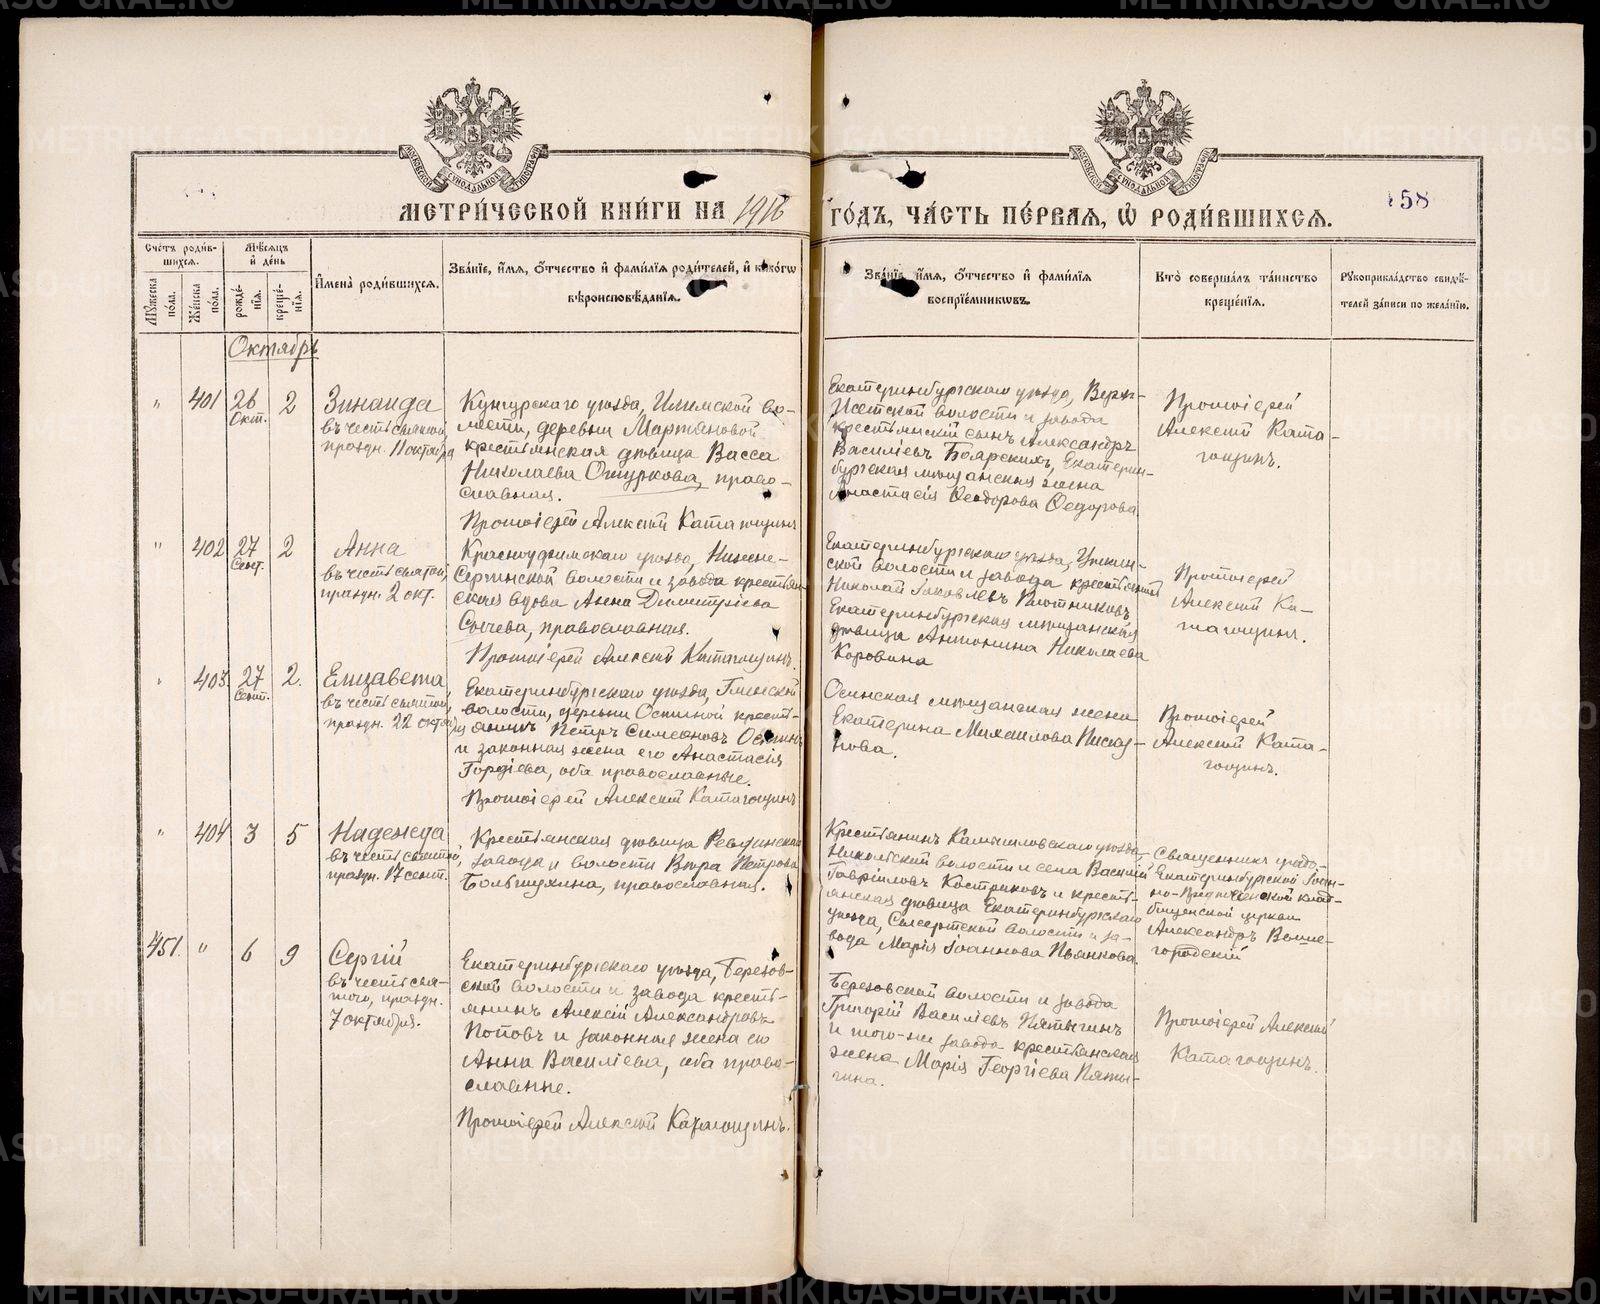 МОСКОВСКОЙ СѴНОДАЛЬНОЙ ТИПОГРАФІИ
МОСКОВСКОЙ СѴНОДАЛЬНОЙ ТИПОГРАФІИ
МЕТРИ́ЧЕСКОЙ КНИ́ГИ НА 1916
ГО́ДЪ, ЧА́СТЬ ПЕ́РВАЯ, Ѡ РОДИ́ВШИХСЯ.
158
Сче́тъ роди́вшихся.
Мꙋ́жеска по́ла.
Же́нска по́ла.
Мѣ́сяцъ и де́нь
рожде́нїя.
креще́нїя.
Имена̀ роди́вшихся.
Зва́нїе, и́мя, о́тчество и фами́лїя роди́телей, и како́гѡ
вѣроисповѣ́данїя.
Зва́нїе, и́мя, о́тчество и фами́лїя
воспрїе́мникѡвъ.
Кто̀ соверша́лъ та́инство
креще́нїя.
Рꙋкоприкла́дство свидѣ́-
телей за́писи по жела́нїю.
Октябрь
" 401 26 Окт. 2
Зинаида
въ честь святой,
праздн. 11 октября
Кунгурскаго уѣзда, Илимской во-
лости, деревни Мартяновой
крестьянская дѣвица Васса
Николаева Ошуркова, право-
славная.
Протоіерей Алексій Катагощинъ
Екатеринбургскаго уѣзда, Верх-
Исетской волости и завода
крестьянскій сынъ Александръ
Василіевъ Боярскихъ, Екатерин-
бургская мѣщанская жена
Анастасія Ѳеодорова Ѳедорова.
Протоіерей
Алексій Ката-
гощинъ.
" 402 27 Сент. 2
Анна
въ честь святой,
праздн. 2 окт.
Красноуфимскаго уѣзда, Нижне-
Сергинской волости и завода крестьян-
ская вдова Анна Димитріева
Сычева, православная.
Протоіерей Алексій Катагощинъ.
Екатеринбургскаго уѣзда, Уткин-
ской волости и завода крестьянинъ
Николай Іаковлевъ Плотниковъ
Екатеринбургская мѣщанская
дѣвица Антонина Николаева
Коровина
Протоіерей
Алексій Ка-
тагощинъ.
" 403. 27 Сент. 2.
Елизавета
въ честь святой,
праздн. 22 октяб.
Екатеринбургскаго уѣзда, Глинской
волости, деревни Осиной крестья-
нинъ Петръ Симеоновъ Осинъ
и законная жена его Анастасія
Гордіева, оба православные.
Протоіерей Алексій Катагощинъ
Осинская мѣщанская жена
Екатерина Михаилова Писку-
нова.
Протоіерей
Алексій Ката-
гощинъ.
" 404 3 5
Надежда
въ честь святой,
праздн. 17 сент.
Крестьянская дѣвица Ревдинскаго
завода и волости Вѣра Петрова
Большухина, православная.
Крестьянинъ Камышловскаго уѣзда,
Никольской волости и села Василій
Гавріиловъ Костриковъ и кресть-
янская дѣвица Екатеринбургскаго
уѣзда, Сысертской волости и за-
вода Марія Іоаннова Пьянкова.
Священникъ градо-
Екатеринбургской Іоан-
но-Предтеченской клад-
бищенской церкви
Александръ Выше-
городскій
451. " 6 9
Сергій
въ честь свя-
того, праздн.
7 октября.
Екатеринбургскаго уѣзда, Березов-
ской волости и завода кресть-
янинъ Алексій Александровъ
Поповъ и законная жена его
Анна Василіева, оба право-
славные.
Протоіерей Алексій Катагощинъ.
Березовской волости и завода
Григорій Василіевъ Пятыгинъ
и того-же завода крестьянская
жена Марія Георгіева Пяты-
гина.
Протоіерей Алексій
Катагощинъ.
METRIKI.GASO-URAL.RU